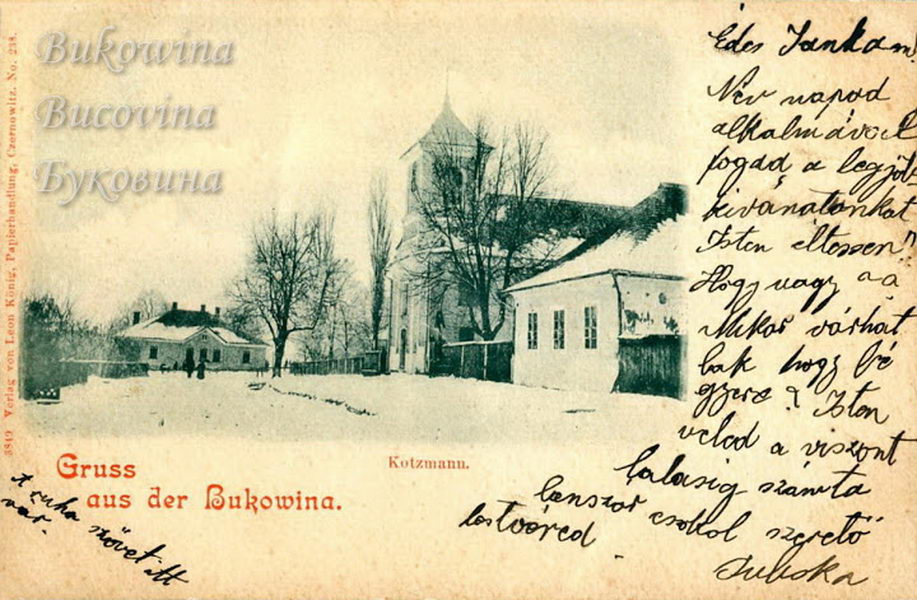 Bukowina
Bucovina
Буковина
3849 Verlag von Leon König, Papierhandlung, Czernowitz. No. 238.
Kotzmann.
Gruss
aus der Bukowina.
Édes Jankám!
Név napod
alkalmával
fogad a legjobb
kívánatonkat
Isten éltessen!
Hogy vagy
Mikor várhat
lak hogy fé
gyere ? Isten
veled a viszont
talasig számta
lanszor csokol szerető
testvéred
Juliska
A ruha szövet itt
vár.